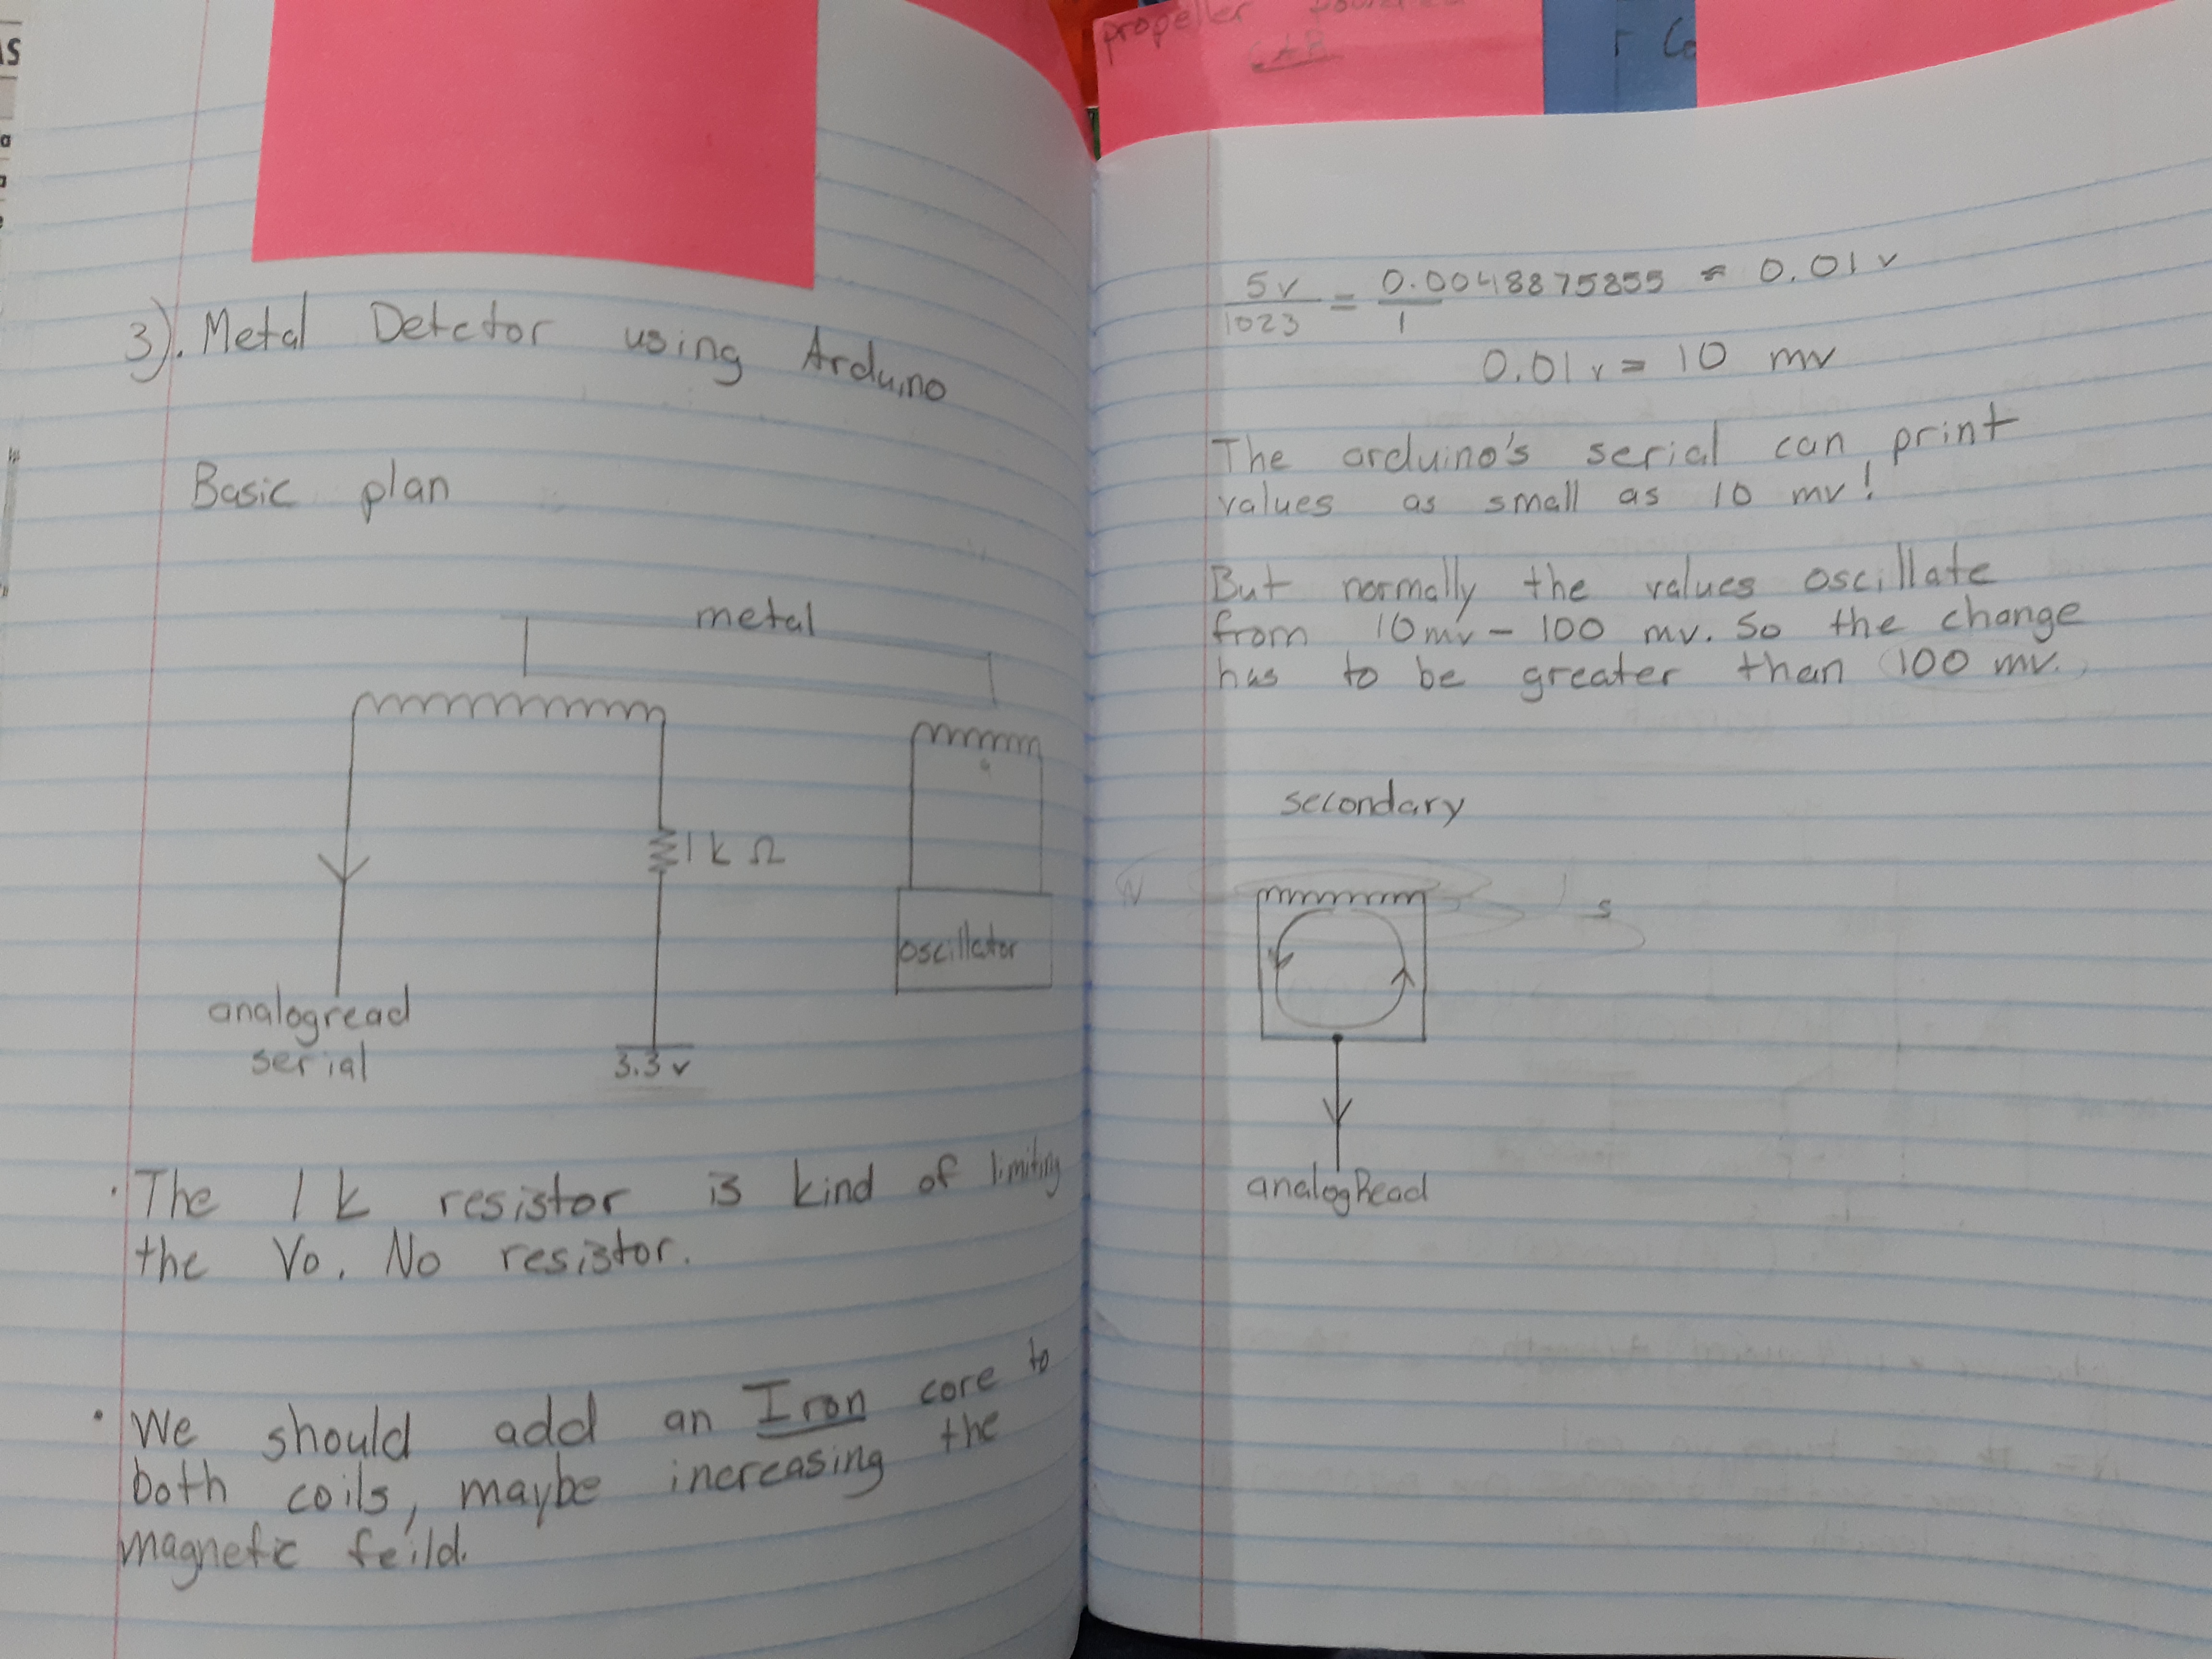 3). Metal Detector using Arduino
Basic plan
metal
1 k Ω
analogread
serial
3.3 v
oscillator
· The 1 k resistor is kind of limiting
the Vo. No resistor.
· We should add an Iron core to
both coils, maybe increasing the
magnetic feild.
5v = 0.004887585 ≈ 0.01 v
1023 1
0.01 v = 10 mv
The arduino's serial can print
values as small as 10 mv!
But normally the values oscillate
from 10mv - 100 mv. So the change
has to be greater than 100 mv.
secondary
N
s
analogRead
propeller